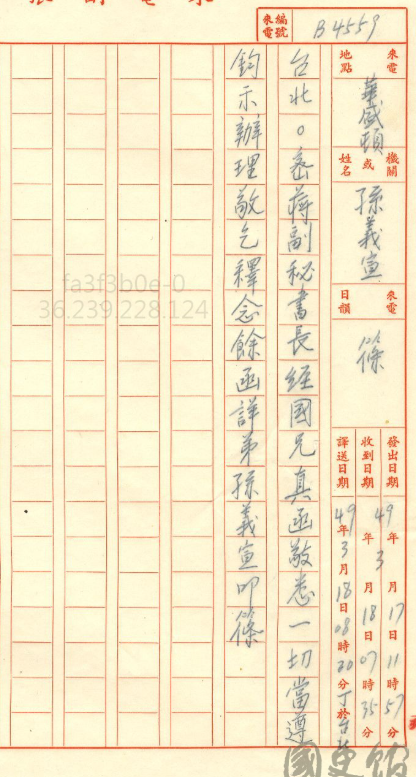 來電 紙
編號
來電
B4559
來電
地點
華盛頓
機關
或
姓名
孫義宣
來電
日韻
篠
發出日期 49年3月17日11時57分
收到日期 年 月18日07時35分
譯送日期 49年3月18日08時20分
台北。密蔣副秘書長經國兄真函敬悉一切當遵
鈞示辦理敬乞釋念餘函詳弟孫義宣叩篠
fa3f3b0e-0
36.239.228.124
國史館